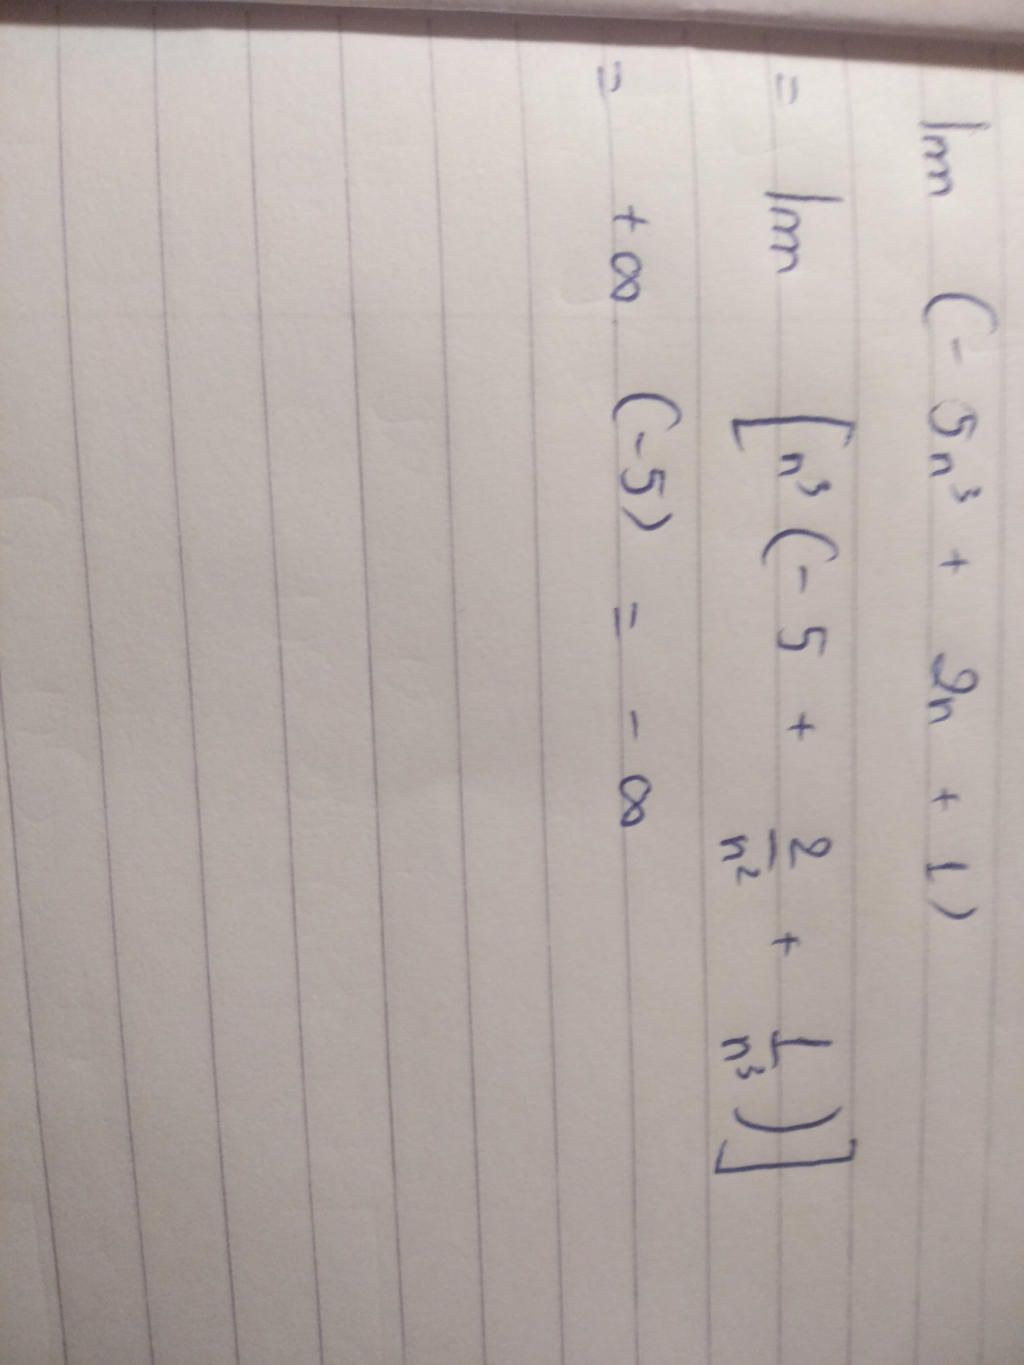 lim (- 5n³ + 2n + 1)
= lim [n³ (- 5 + 2/n² + 1/n³)]
= +∞ (-5) = -∞